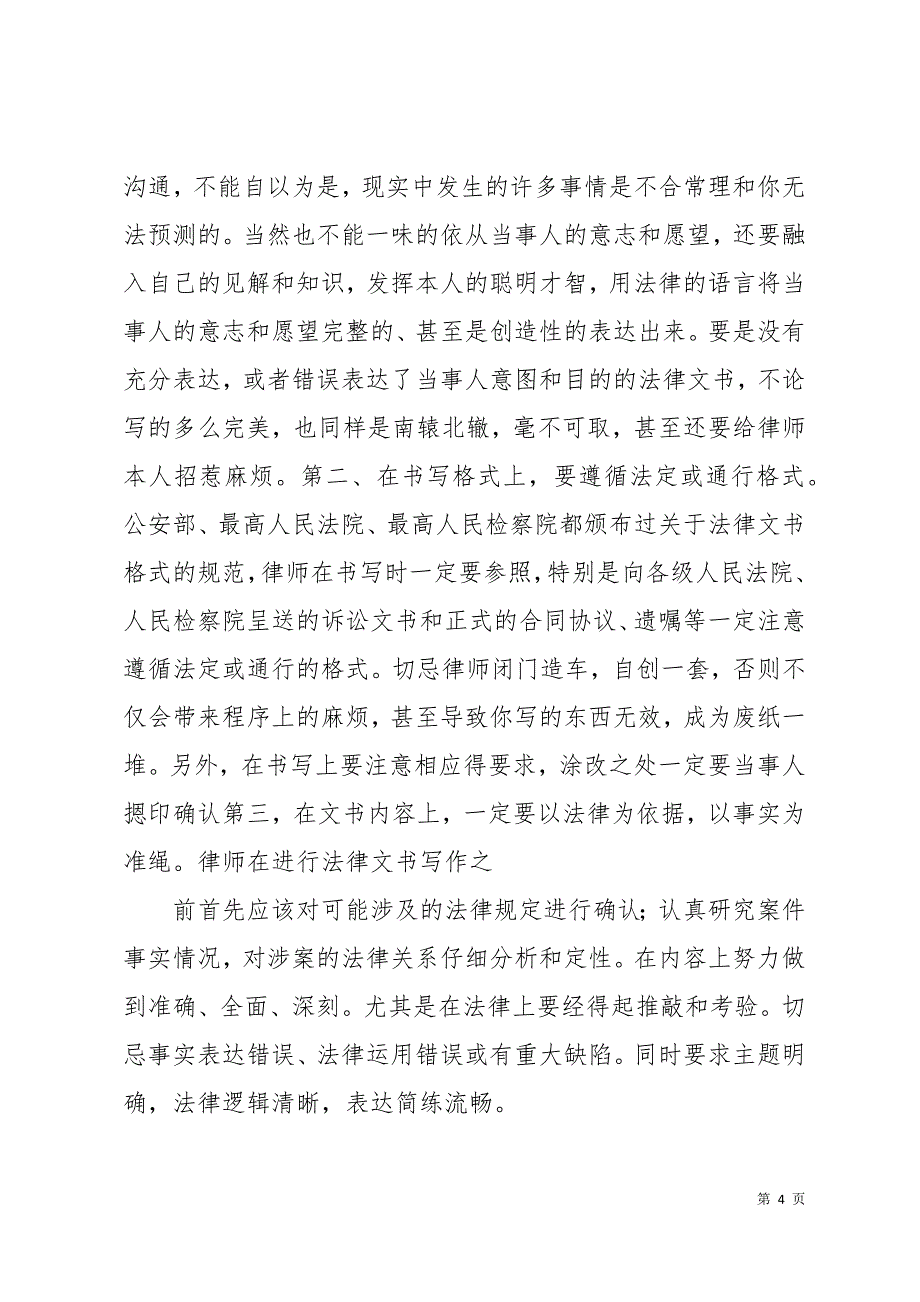 沟通，不能自以为是，现实中发生的许多事情是不合常理和你无
法预测的。当然也不能一味的依从当事人的意志和愿望，还要融
入自己的见解和知识，发挥本人的聪明才智，用法律的语言将当
事人的意志和愿望完整的、甚至是创造性的表达出来。要是没有
充分表达，或者错误表达了当事人意图和目的的法律文书，不论
写的多么完美，也同样是南辕北辙，毫不可取，甚至还要给律师
本人招惹麻烦。第二、在书写格式上，要遵循法定或通行格式。
公安部、最高人民法院、最高人民检察院都颁布过关于法律文书
格式的规范,律师在书写时一定要参照,特别是向各级人民法院、
人民检察院呈送的诉讼文书和正式的合同协议、遗嘱等一定注意
遵循法定或通行的格式。切忌律师闭门造车，自创一套，否则不
仅会带来程序上的麻烦，甚至导致你写的东西无效，成为废纸一
堆。另外，在书写上要注意相应得要求，涂改之处一定要当事人
摁印确认第三，在文书内容上，一定要以法律为依据，以事实为
准绳。律师在进行法律文书写作之
前首先应该对可能涉及的法律规定进行确认；认真研究案件
事实情况，对涉案的法律关系仔细分析和定性。在内容上努力做
到准确、全面、深刻。尤其是在法律上要经得起推敲和考验。切
忌事实表达错误、法律运用错误或有重大缺陷。同时要求主题明
确，法律逻辑清晰，表达简练流畅。
第 4 页